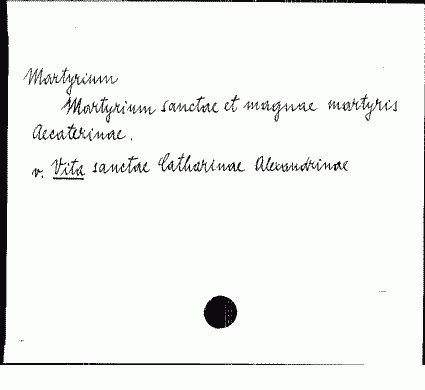 Martyrium
Martyrium sanctae et magnae martyris
Aecaterinae.
v. Vita sanctae Catharinae Alexandrinae